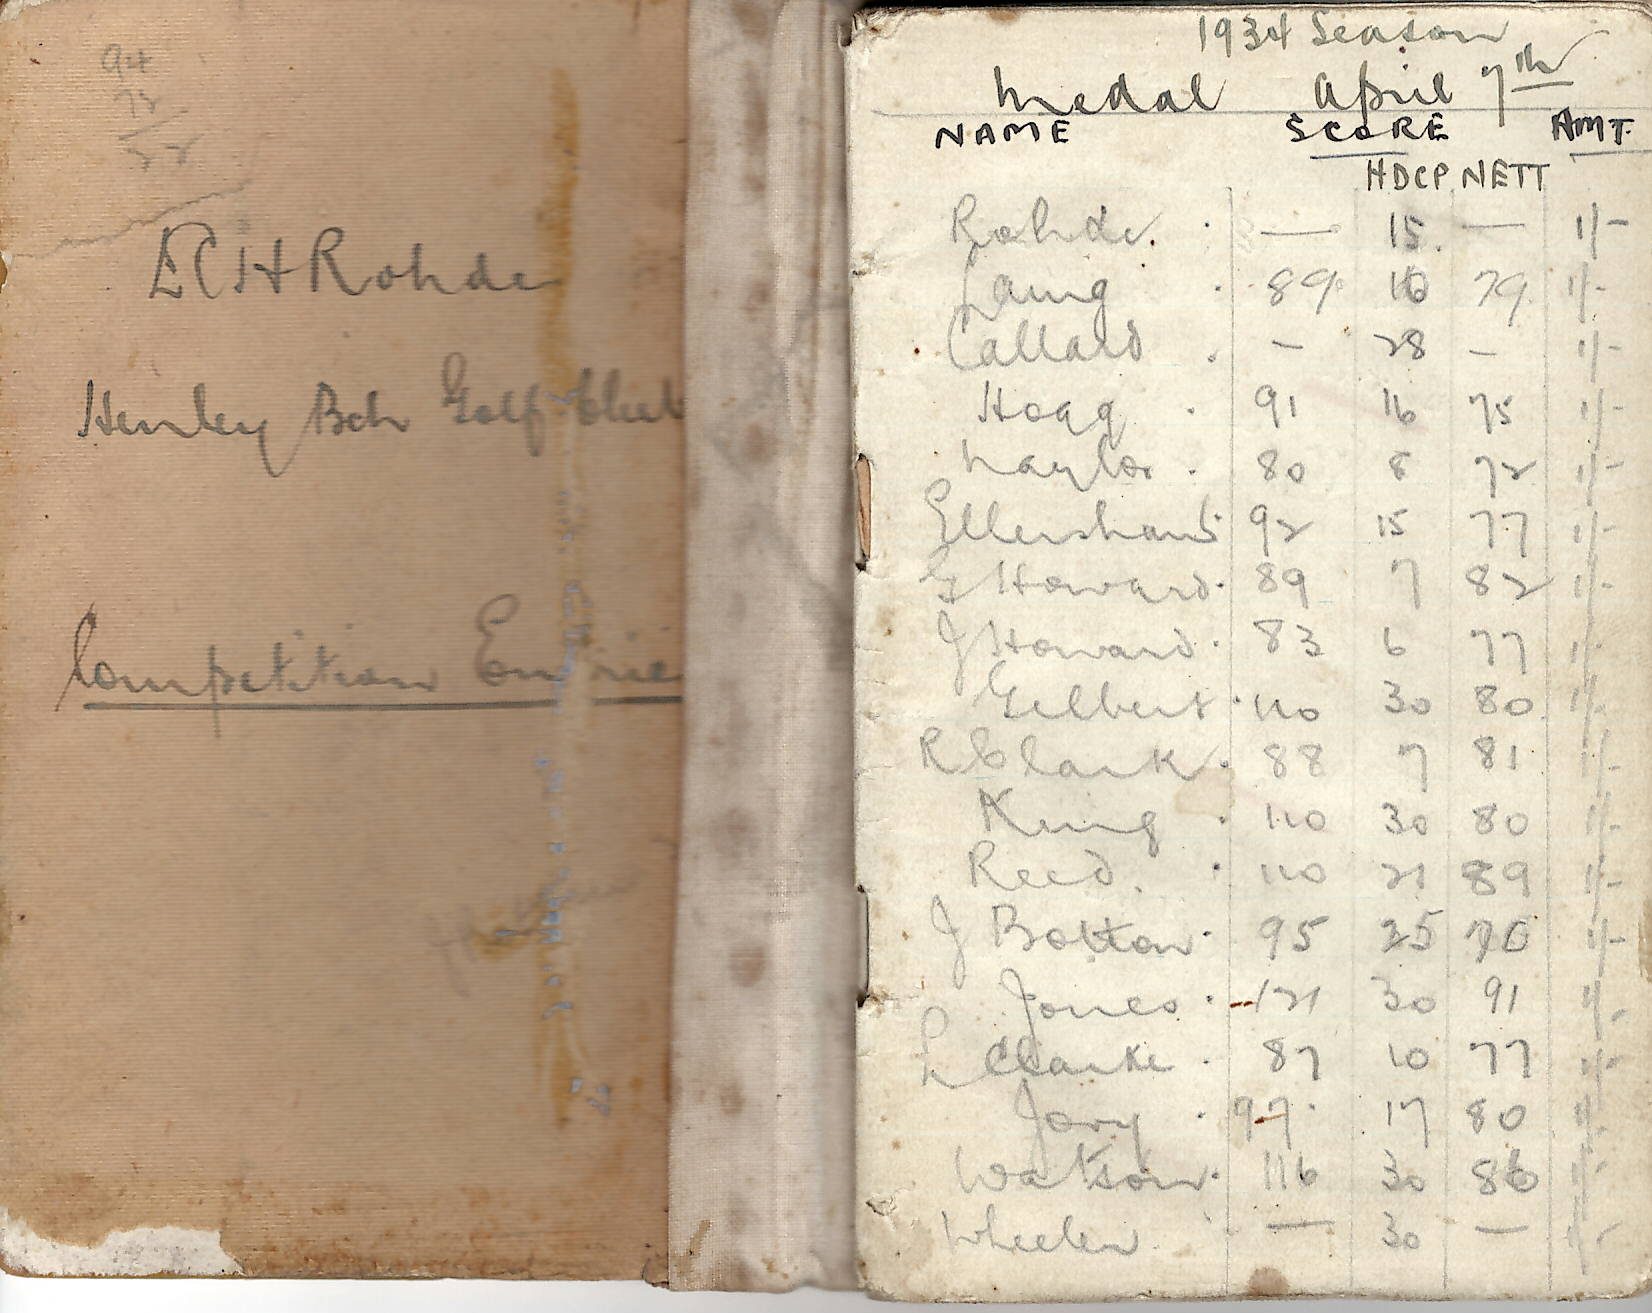 94
72
22
E C H Rohde
Henley Bch Golf Club
Competition Entries
1934 Season
Medal April 7th
NAME SCORE AMT.
HDCP NETT
Rohde. — 15. — 1/-
Laing 89 10 79 1/-
Callard - 28 - 1/-
Hogg 91 16 75 1/-
Naylor 80 8 72 1/-
Ellershaw 92 15 77 1/-
G Howard 89 7 82 1/-
J Howard 83 6 77 1/-
Gilbert 110 30 80 1/-
R Clark 88 7 81 1/-
King 110 30 80 1/-
Reed. 110 21 89 1/-
J Botton 95 25 70 1/-
Jones 121 30 91 1/-
L Clarke 87 10 77 1/-
Jory 97 17 80 1/-
Watson 116 30 86 1/-
Wheeler — 30 — 1/-